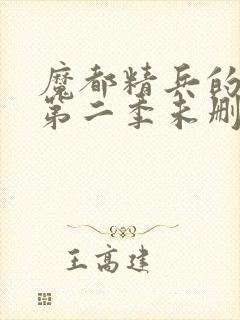 魔都精兵的
第二季未删
王高建